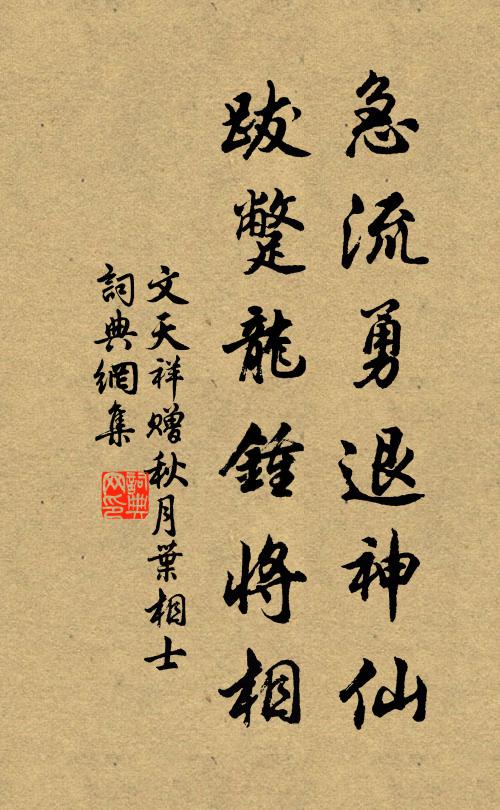 急流勇退神仙
跋躄龍鍾將相
文天祥赠秋月葉相士
詞典網集
詞典网印